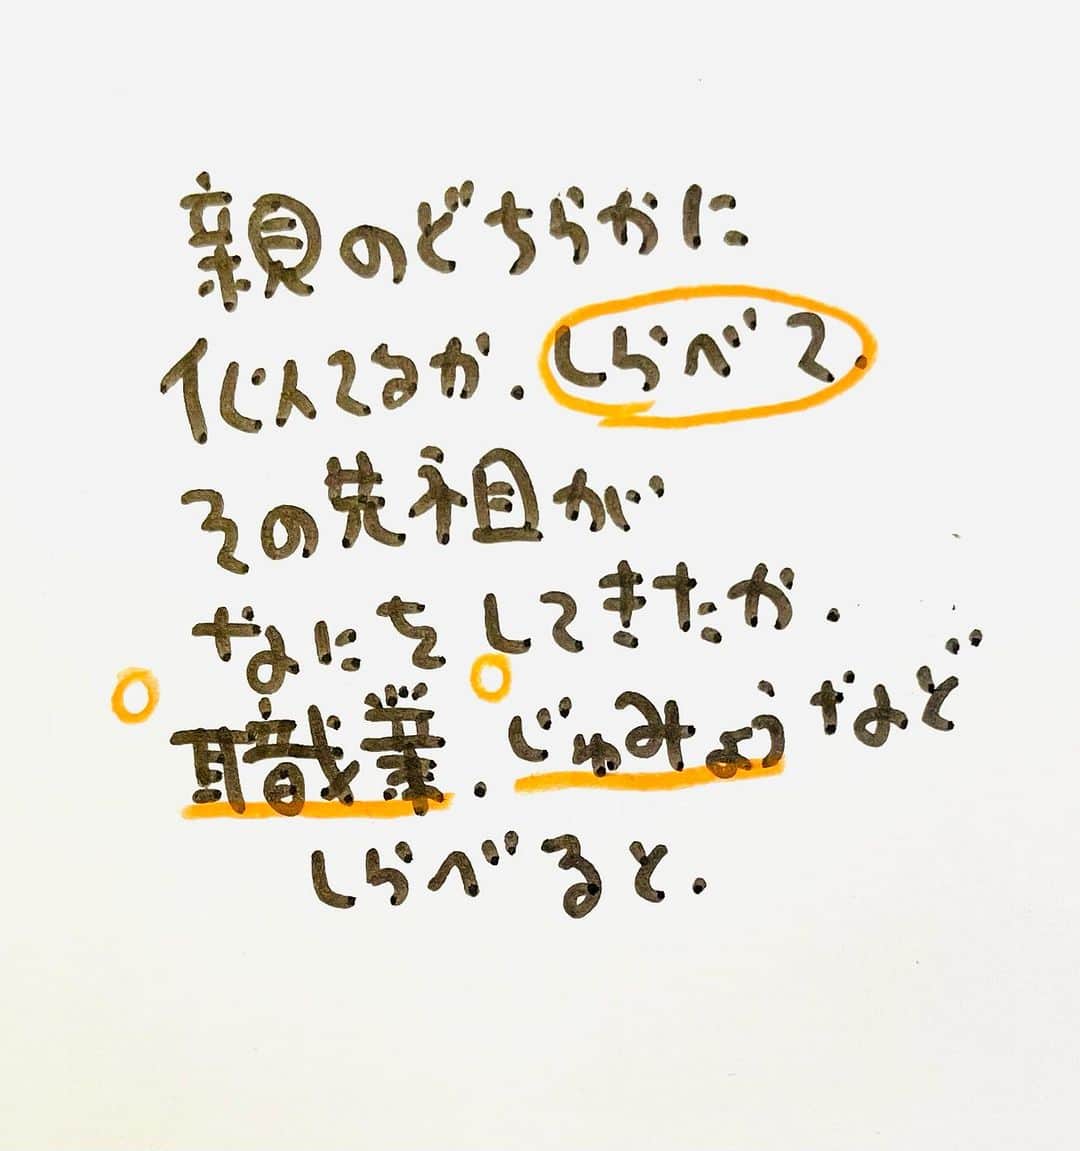 親のどちらかに
似てるか.しらべて.
その先祖が
なにをしてきたか.
職業.じゅみょうなど
しらべると.